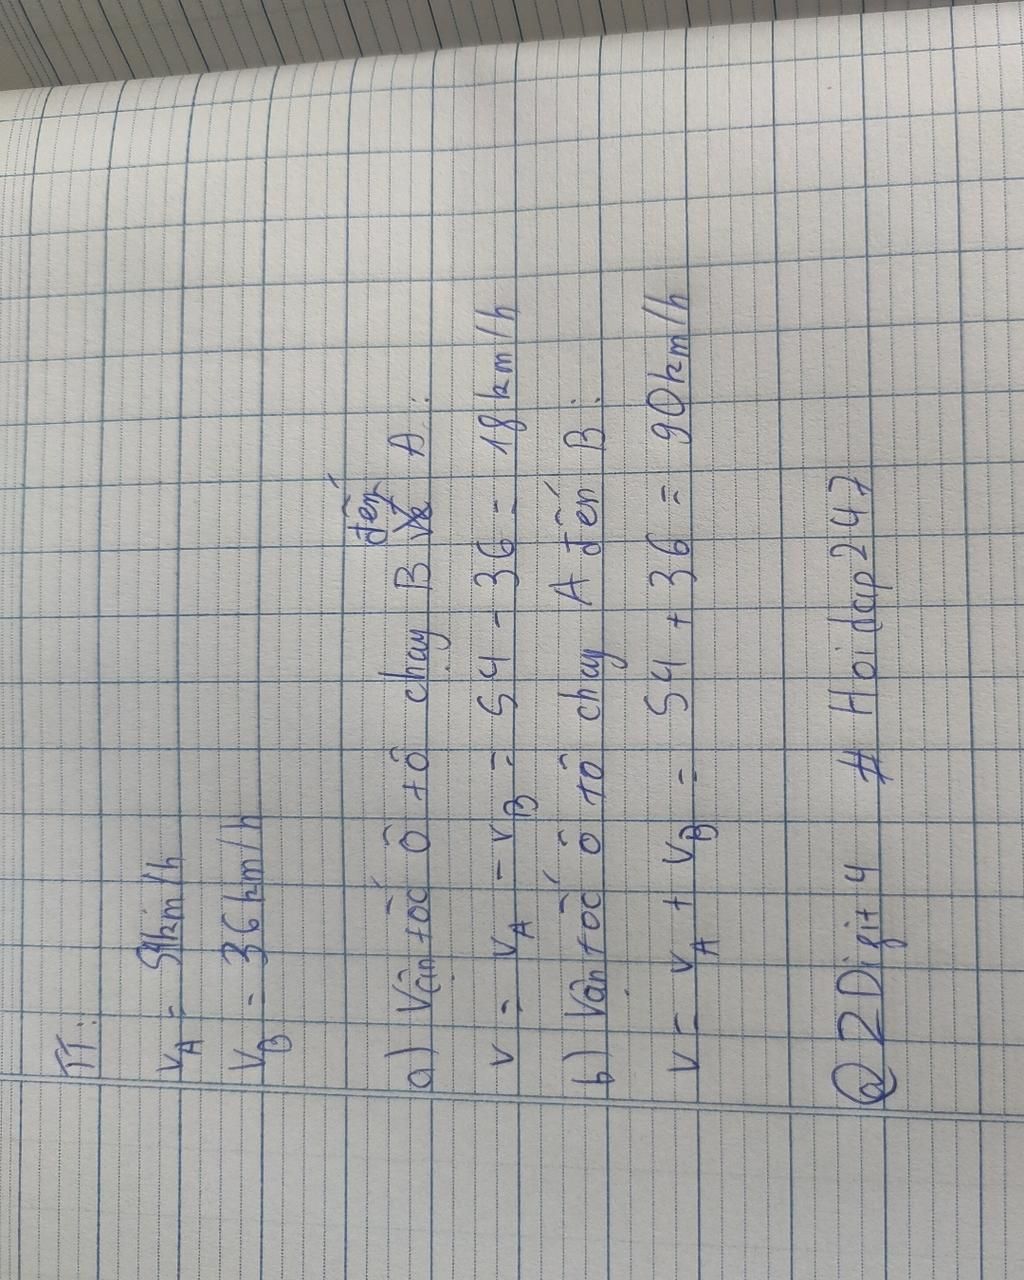 TT:
v_A = 54km/h
v_B = 36km/h
đến
a) Vận tốc ô tô chạy B A:
v = v_A - v_B = 54 - 36 = 18km/h
b) Vận tốc ô tô chạy A đến B:
v = v_A + v_B = 54 + 36 = 90km/h
@2Digit4 # Hoidap247